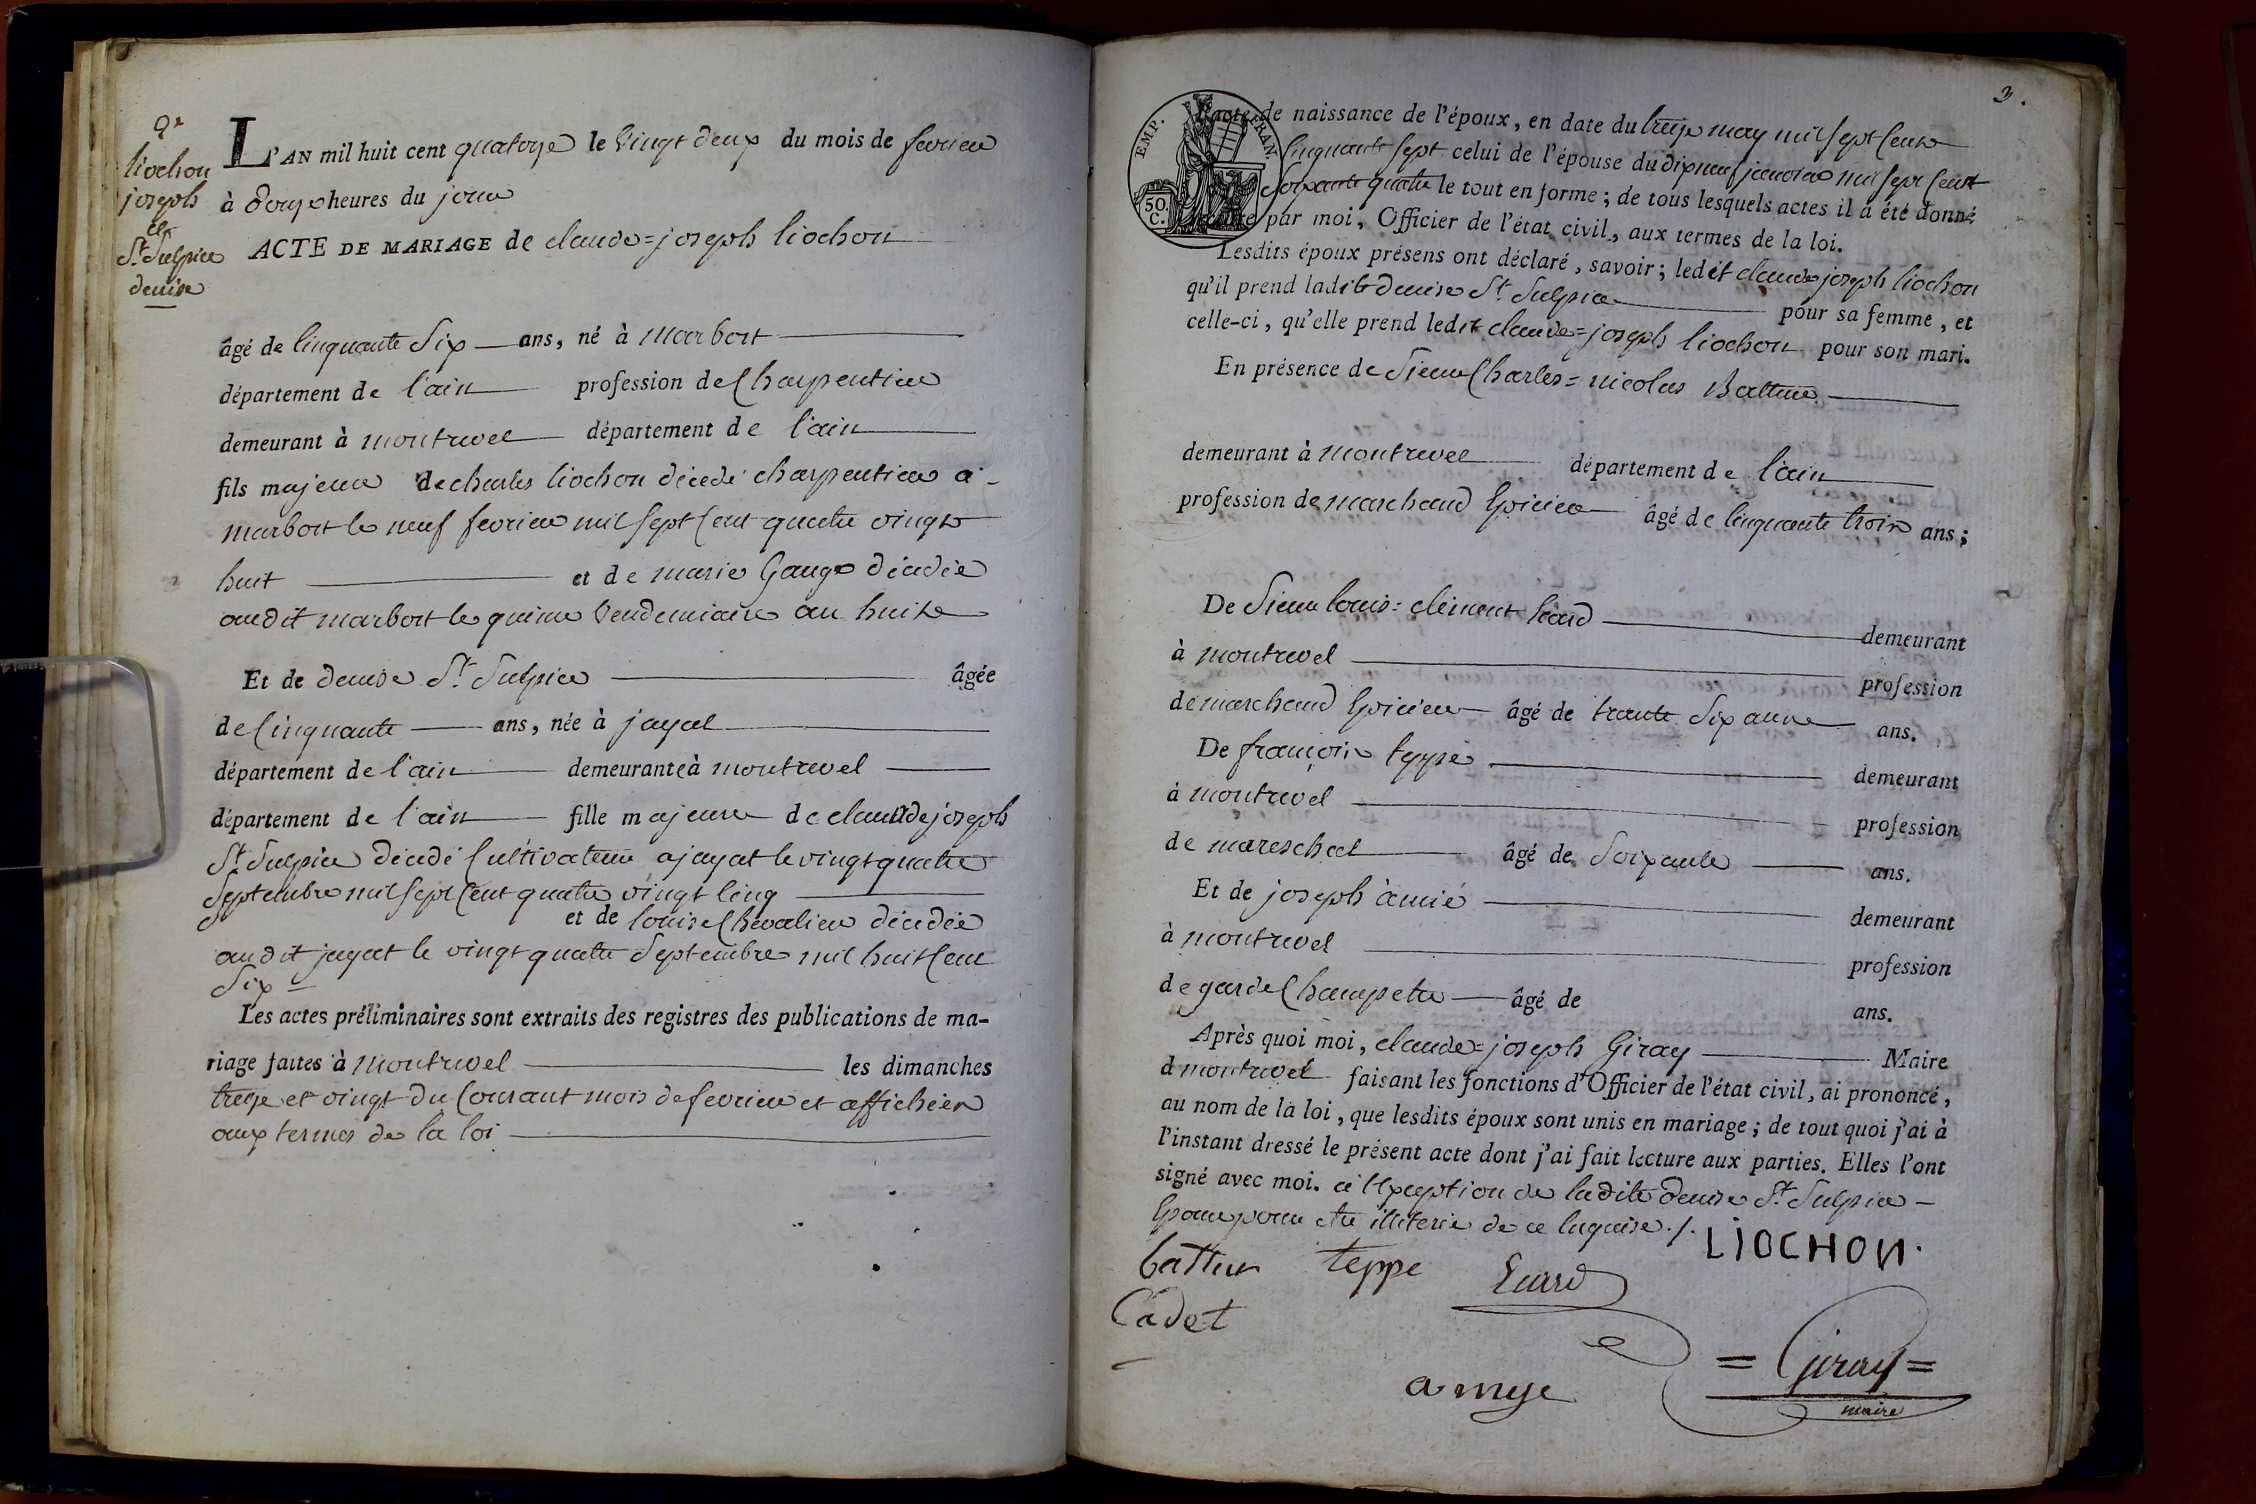 liochon
joseph
et
St. Sulpice
denise
L'AN mil huit cent quatorze le vingt deux du mois de fevrier
à douze heures du jour
ACTE DE MARIAGE de claude=joseph liochon
âgé de cinquante six ans, né à marbost
département de l'ain profession de Charpentier
demeurant à montrevel département de l'ain
fils majeur de charles liochon décédé charpentier à
marbost le neuf fevrier mil sept Cent quatre vingt
huit et de marie Gauge décédée
audit marbost le quinze Vendemiaire an huit
Et de denise St. Sulpice âgée
de Cinquante ans, née à jayat
département de l'ain demeurante à montrevel
département de l'ain fille majeure de claude joseph
St. Sulpice décédé Cultivateur a jayat le vingt quatre
Septembre mil sept Cent quatre vingt Cinq
et de louise Chevalier décédée
audit jayat le vingt quatre Septembre mil huit Cent
Six
Les actes préliminaires sont extraits des registres des publications de ma-
riage faites à montrevel les dimanches
treize et vingt du Courant mois de fevrier et affichées
aux termes de la loi
3.
EMP. FRAN.
50.
C.
l'acte de naissance de l'époux, en date du treize may mil sept Cent
Cinquante sept celui de l'épouse du dixneuf janvier mil sept Cent
Soixante quatre le tout en forme ; de tous lesquels actes il a été donné
lecture par moi, Officier de l'état civil, aux termes de la loi.
Lesdits époux présens ont déclaré, savoir ; ledit claude joseph liochon
qu'il prend ladite denise St. Sulpice pour sa femme, et
celle-ci, qu'elle prend ledit claude=joseph liochon pour son mari.
En présence de Sieur Charles=nicolas Batteur
demeurant à montrevel département de l'ain
profession de marchand Epicier âgé de Cinquante trois ans ;
De Sieur louis=clément demeurant
à montrevel profession
de marchand Epicier âgé de trante six ans.
De françois teppe demeurant
à montrevel profession
de mareschal âgé de Soixante ans.
Et de joseph demeurant
à montrevel profession
de garde Champetre âgé de ans.
Après quoi moi, claude=joseph Giray Maire
d montrevel faisant les fonctions d'Officier de l'état civil, ai prononcé,
au nom de la loi, que lesdits époux sont unis en mariage ; de tout quoi j'ai à
l'instant dressé le présent acte dont j'ai fait lecture aux parties. Elles l'ont
signé avec moi. à l'Exception de ladite denise St. Sulpice
Epouse pour etre illiterée de ce enquise ./.
LIOCHON.
batteur teppe
Cadet
amye
= Giray =
maire